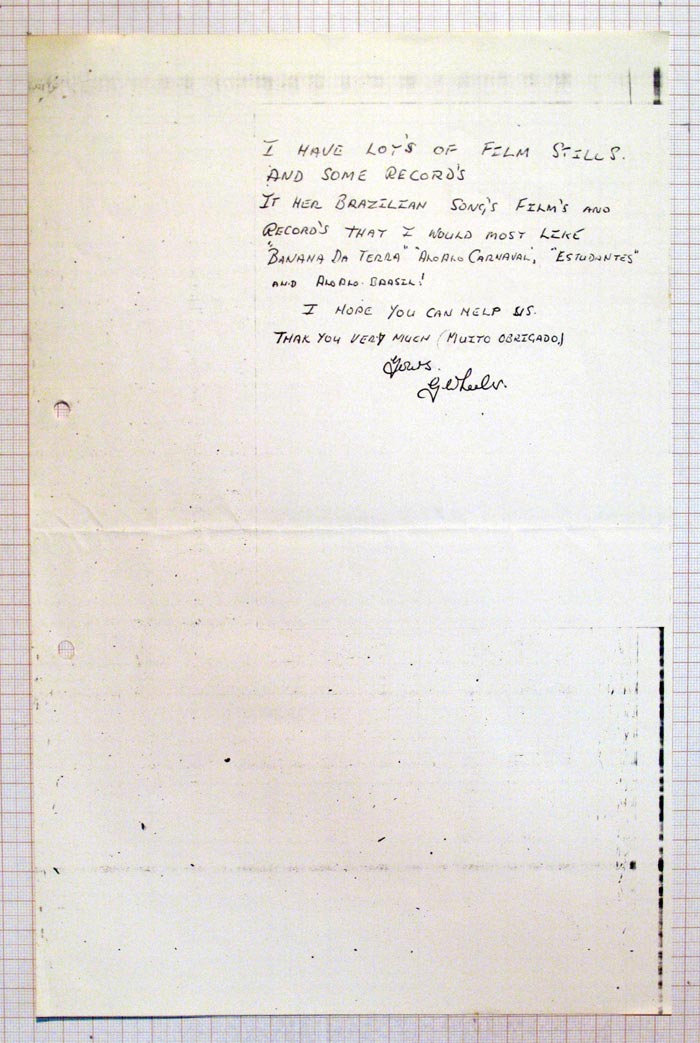 I HAVE LOT'S OF FILM STILLS.
AND SOME RECORD'S
IT HER BRAZILIAN SONG'S FILM'S AND
RECORD'S THAT I WOULD MOST LIKE
"BANANA DA TERRA" "ALO ALO CARNAVAL", "ESTUDANTES"
AND ALO ALO. BRASIL!
I HOPE YOU CAN HELP US.
THAK YOU VERY MUCH (MUITO OBRIGADO)
Yours.
G Wheeler.